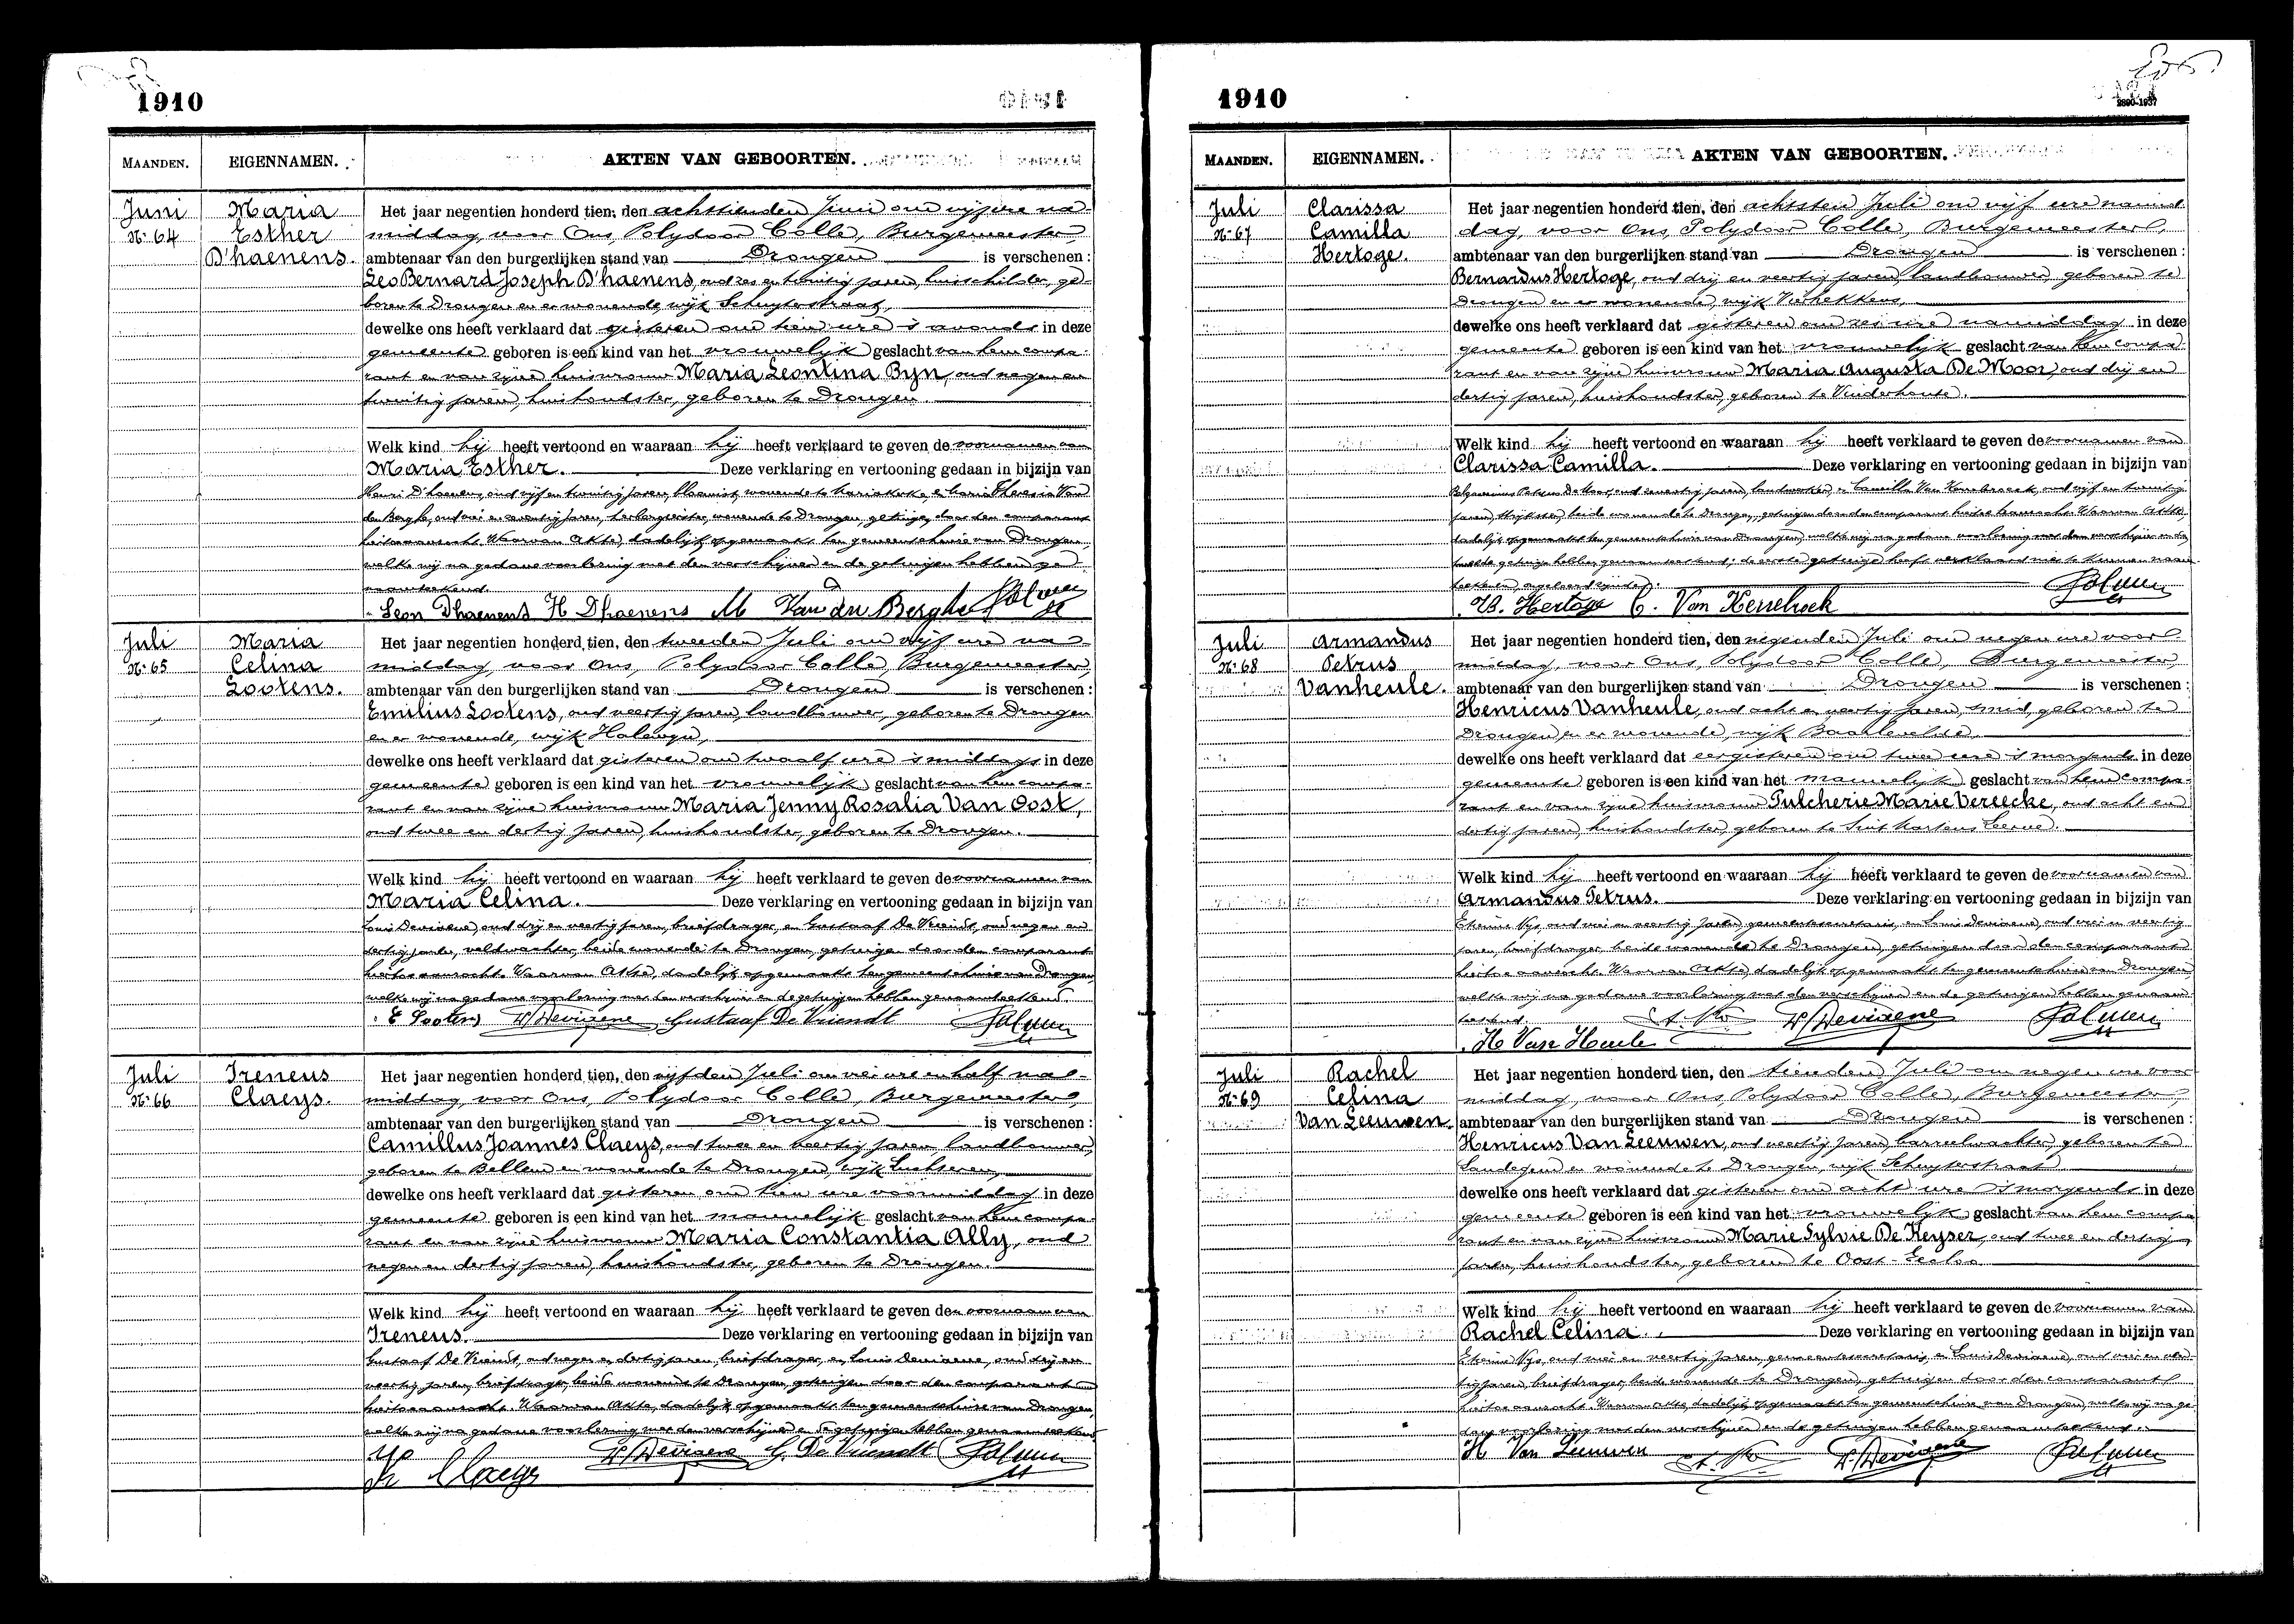 1910
MAANDEN. EIGENNAMEN. AKTEN VAN GEBOORTEN.
Juni
Nr 64
Maria
Esther
D'haenens.
Het jaar negentien honderd tien, den achttienden Juni om vijf ure na-
middag, voor Ons, Polydoor Colle, Burgemeester,
ambtenaar van den burgerlijken stand van Drongen is verschenen :
Leo Bernard Joseph D'haenens, oud zes en twintig jaren, huisschilder, ge-
boren te Drongen en er wonende, wijk Schuyterstraat,
dewelke ons heeft verklaard dat gisteren om tien ure 's avonds in deze
gemeente geboren is een kind van het vrouwelijk geslacht van hem compa-
rant en van zijne huisvrouw Maria Leontina Byn, oud negen en
twintig jaren, huishoudster, geboren te Drongen.
Welk kind hij heeft vertoond en waaraan hij heeft verklaard te geven de voornamen van
Maria Esther. Deze verklaring en vertooning gedaan in bijzijn van
Henri D'haenens, oud vijf en twintig jaren, bloemist, wonende te Mariakerke, en Maria Theresia Van
den Berghe, oud en zeventig jaren, herbergierster, wonende te Drongen, getuigen door den comparant
hiertoe aanzocht. Waarvan Akte, dadelijk opgemaakt ten gemeentehuize van Drongen,
welke wij na gedane voorlezing met den verschijner en de getuigen hebben ge-
naamteekend.
Leon Dhaenens H Dhaenens M Van den Berghe
Juli
Nr 65
Maria
Celina
Lootens.
Het jaar negentien honderd tien, den tweeden Juli om vijf ure na-
middag, voor Ons, Polydoor Colle, Burgemeester,
ambtenaar van den burgerlijken stand van Drongen is verschenen :
Emilius Lootens, oud veertig jaren, landbouwer, geboren te Drongen
en er wonende, wijk Halewyn,
dewelke ons heeft verklaard dat gisteren om twaalf ure 's middags in deze
gemeente geboren is een kind van het vrouwelijk geslacht van hem compa-
rant en van zijne huisvrouw Maria Jenny Rosalia Van Oost,
oud twee en dertig jaren, huishoudster, geboren te Drongen.
Welk kind hij heeft vertoond en waaraan hij heeft verklaard te geven de voornamen van
Maria Celina. Deze verklaring en vertooning gedaan in bijzijn van
Louis Devisene, oud drij en veertig jaren, briefdrager, en Gustaaf De Vriendt, oud negen en
dertig jaren, veldwachter, beide wonende te Drongen, getuigen door den comparant
hiertoe aanzocht. Waarvan Akte, dadelijk opgemaakt ten gemeentehuize van Drongen,
welke wij na gedane voorlezing met den verschijner en de getuigen hebben genaamteekend.
E Lootens L. Devisene Gustaaf De Vriendt
Juli
Nr 66
Ireneus
Claeys.
Het jaar negentien honderd tien, den vijfden Juli om vier ure en half na-
middag, voor Ons, Polydoor Colle, Burgemeester,
ambtenaar van den burgerlijken stand van Drongen is verschenen :
Camillus Joannes Claeys, oud twee en veertig jaren, landbouwer,
geboren te Bellem en wonende te Drongen, wijk Luchteren,
dewelke ons heeft verklaard dat gisteren om tien ure voormiddag in deze
gemeente geboren is een kind van het mannelijk geslacht van hem compa-
rant en van zijne huisvrouw Maria Constantia Ally, oud
negen en dertig jaren, huishoudster, geboren te Drongen.
Welk kind hij heeft vertoond en waaraan hij heeft verklaard te geven den voornaam van
Ireneus. Deze verklaring en vertooning gedaan in bijzijn van
Gustaaf De Vriendt, oud negen en dertig jaren, briefdrager, en Louis Devisene, oud drij en
veertig jaren, briefdrager, beide wonende te Drongen, getuigen door den comparant
hiertoe aanzocht. Waarvan Akte, dadelijk opgemaakt ten gemeentehuize van Drongen,
welke wij na gedane voorlezing met den verschijner en de getuigen hebben genaamteekend.
Claeys L. Devisene G. De Vriendt
1910
2890-1937
MAANDEN. EIGENNAMEN. AKTEN VAN GEBOORTEN.
Juli
Nr 67
Clarissa
Camilla
Hertoge.
Het jaar negentien honderd tien, den achtsten Juli om vijf ure namid-
dag, voor Ons, Polydoor Colle, Burgemeester,
ambtenaar van den burgerlijken stand van Drongen is verschenen :
Bernardus Hertoge, oud drij en veertig jaren, landbouwer, geboren te
Drongen en er wonende, wijk Vierhekkens,
dewelke ons heeft verklaard dat gisteren om zes ure namiddag in deze
gemeente geboren is een kind van het vrouwelijk geslacht van hem compa-
rant en van zijne huisvrouw Maria Augusta De Moor, oud drij en
dertig jaren, huishoudster, geboren te Vinderhoute.
Welk kind hij heeft vertoond en waaraan hij heeft verklaard te geven de voornamen van
Clarissa Camilla. Deze verklaring en vertooning gedaan in bijzijn van
De Moor, oud zeventig jaren, landwerker, en Camilla Van Kerrebroeck, oud vijf en twintig
jaren, strijkster, beide wonende te Drongen, getuigen door den comparant hiertoe aanzocht. Waarvan Akte,
dadelijk opgemaakt ten gemeentehuize van Drongen, welke wij na gedane voorlezing met den verschijner en de
tweede getuige hebben genaamteekend; de eerste getuige heeft verklaard niet te kunnen naam-
teekenen,
B. Hertoge C. Van Kerrebroek
Juli
Nr 68
Armandus
Petrus
Vanheule.
Het jaar negentien honderd tien, den negenden Juli om negen ure voor-
middag, voor Ons, Polydoor Colle, Burgemeester,
ambtenaar van den burgerlijken stand van Drongen is verschenen :
Henricus Vanheule, oud acht en veertig jaren, smid, geboren te
Drongen en er wonende, wijk Baarlevelde,
dewelke ons heeft verklaard dat eergisteren om twee ure 's morgends in deze
gemeente geboren is een kind van het mannelijk geslacht van hem compa-
rant en van zijne huisvrouw Pulcherie Marie Vereecke, oud acht en
dertig jaren, huishoudster, geboren te Sint Martens Leerne.
Welk kind hij heeft vertoond en waaraan hij heeft verklaard te geven de voornamen van
Armandus Petrus. Deze verklaring en vertooning gedaan in bijzijn van
Nys, oud vier en veertig jaren, gemeentesecretaris, en Louis Devisene, oud vier en veertig
jaren, briefdrager, beide wonende te Drongen, getuigen door den comparant
hiertoe aanzocht. Waarvan Akte, dadelijk opgemaakt ten gemeentehuize van Drongen,
welke wij na gedane voorlezing met den verschijner en de getuigen hebben genaam-
teekend.
L. Devisene
H Van Heule
Juli
Nr 69
Rachel
Celina
Van Leeuwen.
Het jaar negentien honderd tien, den tienden Juli om negen ure voor-
middag, voor Ons, Polydoor Colle, Burgemeester,
ambtenaar van den burgerlijken stand van Drongen is verschenen :
Henricus Van Leeuwen, oud veertig jaren, barreelwachter, geboren te
Landegem en wonende te Drongen, wijk Schuyterstraat
dewelke ons heeft verklaard dat gisteren om acht ure 's morgends in deze
gemeente geboren is een kind van het vrouwelijk geslacht van hem compa-
rant en van zijne huisvrouw Marie Sylvie De Keyser, oud twee en dertig
jaren, huishoudster, geboren te Oost-Eecloo
Welk kind hij heeft vertoond en waaraan hij heeft verklaard te geven de voornamen van
Rachel Celina. Deze verklaring en vertooning gedaan in bijzijn van
Nys, oud vier en veertig jaren, gemeentesecretaris, en Louis Devisene, oud vier en veer-
tig jaren, briefdrager, beide wonende te Drongen, getuigen door den comparant
hiertoe aanzocht. Waarvan Akte, dadelijk opgemaakt ten gemeentehuize van Drongen, welke wij na ge-
dane voorlezing met den verschijner en de getuigen hebben genaamteekend.
H Van Leeuwen L. Devisene